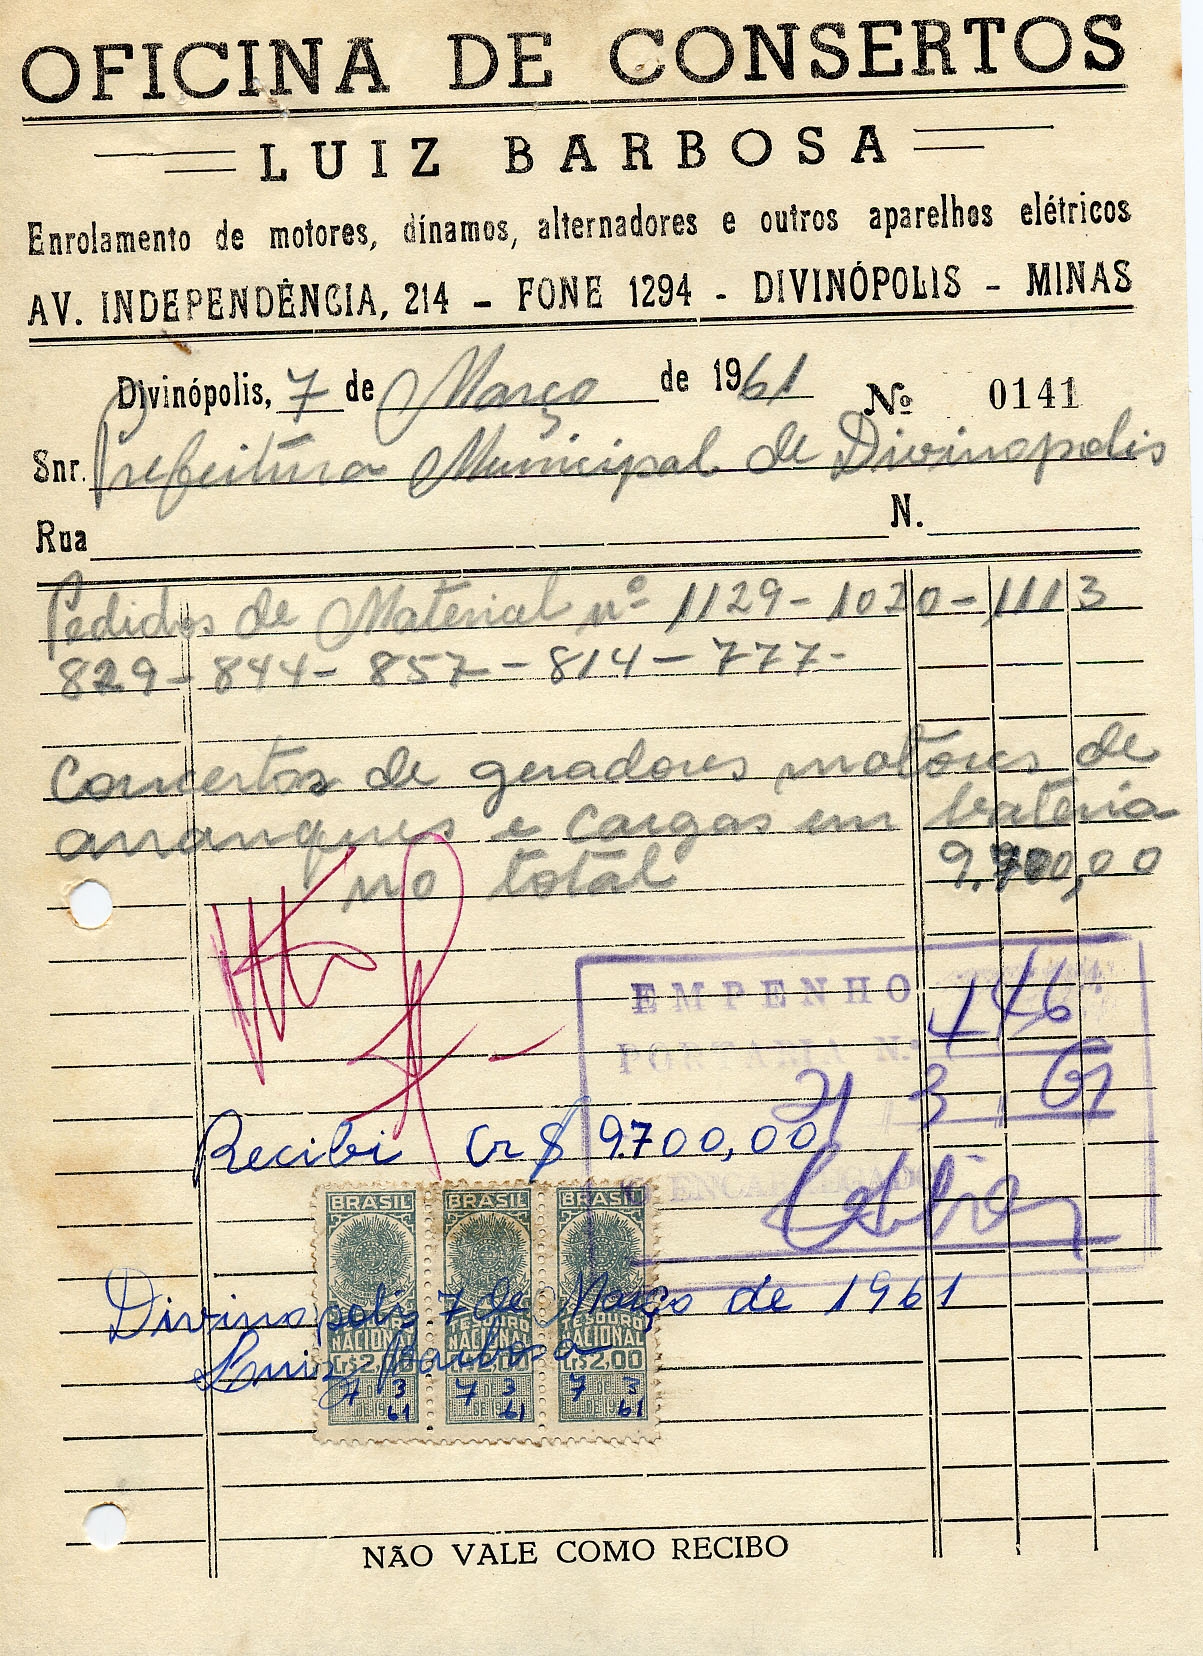 OFICINA DE CONSERTOS
LUIZ BARBOSA
Enrolamento de motores, dínamos, alternadores e outros aparelhos elétricos
AV. INDEPENDÊNCIA, 214 - FONE 1294 - DIVINÓPOLIS - MINAS
Divinópolis, 7 de Março de 1961 Nº 0141
Snr. Prefeitura Municipal de Divinopolis
Rua N.
Pedidos de Material nº 1129-1020-1113
829-844-857-814-777-
Concertos de geradores motores de
arranques e cargas em bateria
no total 9.700,00
EMPENHO 446
PORTARIA N.º
21 3 61
Recibi Cr$ 9.700,00
ENCARREGADO
BRASIL BRASIL BRASIL
Divinopolis 7 de Março de 1961
TESOURO TESOURO TESOURO
NACIONAL NACIONAL NACIONAL
Luiz Barbosa
Cr$2,00 Cr$2,00 Cr$2,00
7 3 7 3 7 3
61 61 61
NÃO VALE COMO RECIBO